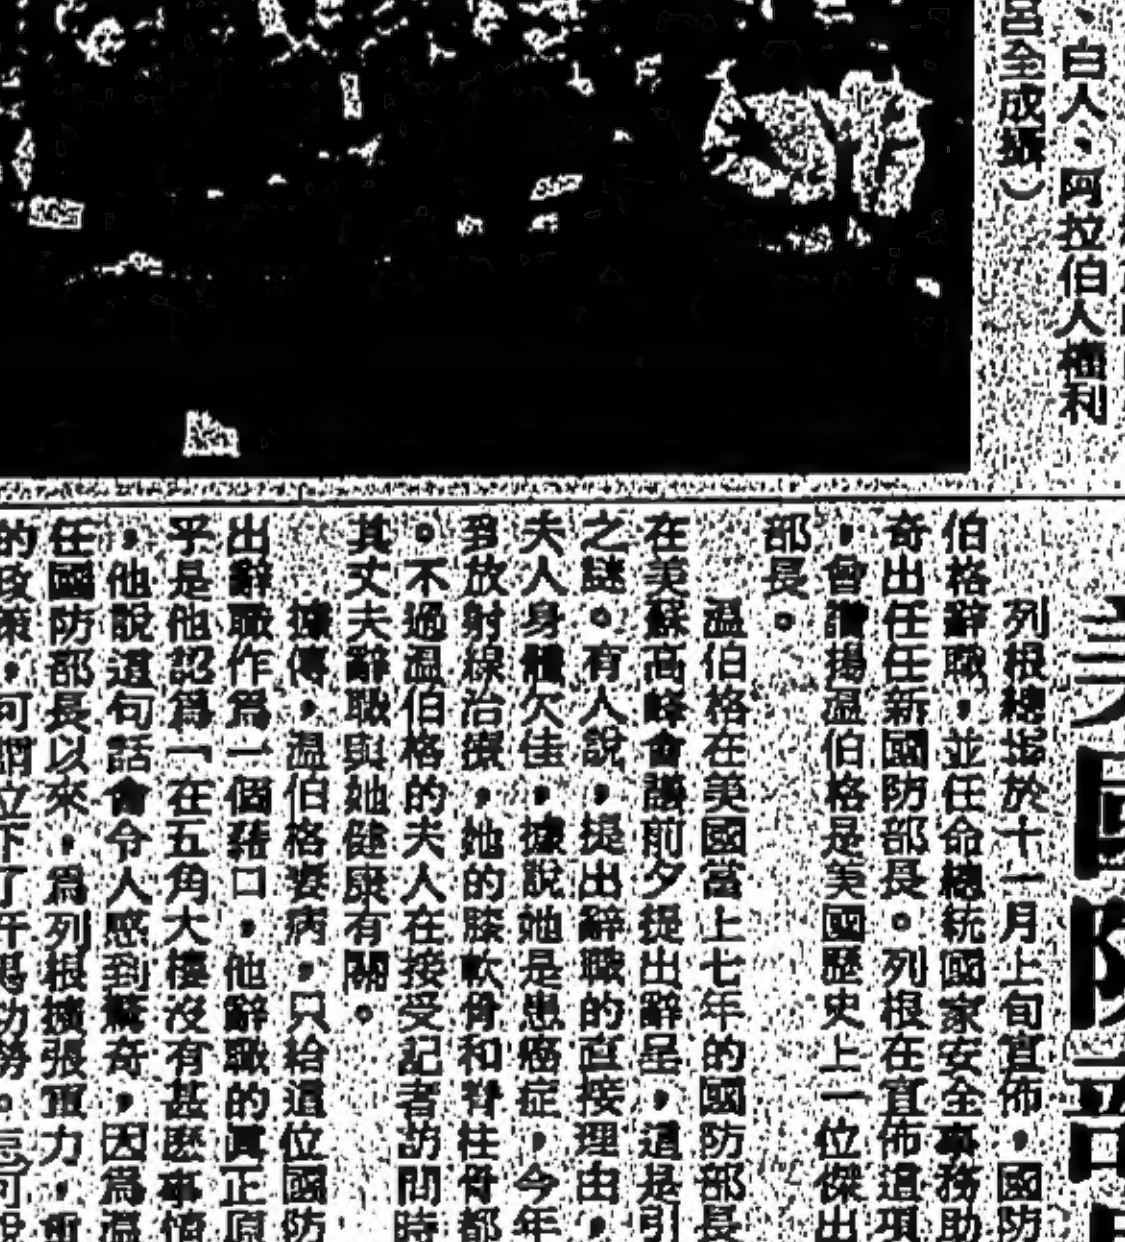 、白人、阿拉伯人種利
呂全成攝）
國防部
列根總統於十一月上旬宣佈，國防
伯格辭職，並任命總統國家安全事務助
奇出任任新國防部長。列根在宣佈這項
，會讚揚溫伯格是美國歷史上一位傑出
部長。
溫伯格在美國當上七年的國防部長
在美蘇高峰會議前夕提出辭呈，這是引
之謎。有人說，提出辭職的直接理由，
夫人身體欠佳，據說她是患癌症，今年
到放射線治療，她的膝軟骨和脊柱骨都
。不過溫伯格的夫人在接受記者訪問時
其丈夫辭職與她健康有關。
據傳，溫伯格妻病，只給這位國防
出辭職作爲一個藉口，他辭職的眞正原
乎是他認爲「在五角大樓沒有甚麽事情
，他說這句話會令人感到驚奇，因爲溫
任國防部長以來，爲列根擴張軍力，重
的政策，可謂立下了汗馬功勞。